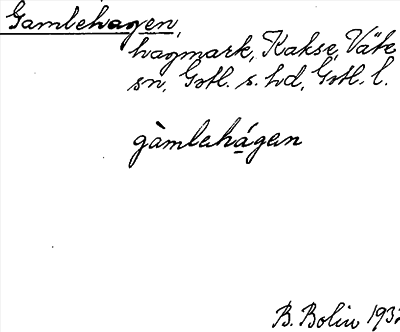 Gamlehagen,
hagmark, Kakse, Väte
sn, Gotl. s. hd, Gotl. l.
gàmlehágen
B. Bolin 193